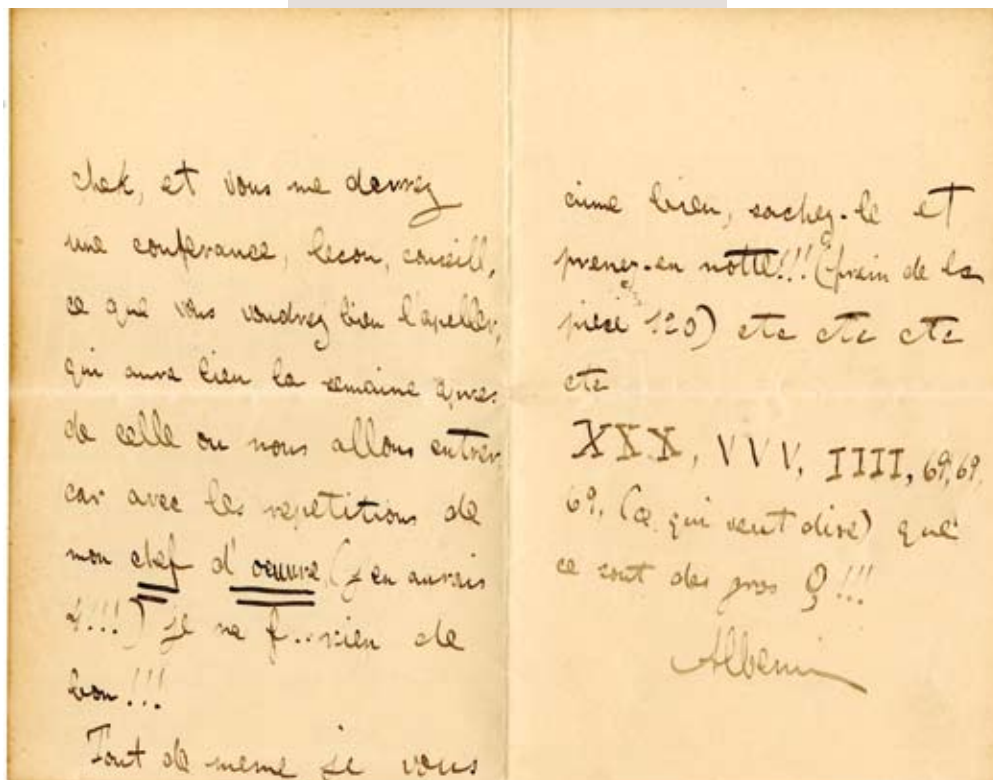 chek, et vous me devrez
une conferance, lecon, conseill,
ce que vous voudrez bien l'apeller,
qui aura lieu la semaine apres
de celle ou nous allons entrer,
car avec les repetitions de
mon chef d'oeuvre, (j'en aurais
4!!!) je ne f..rien de
bon!!!
Tout de meme je vous
aime bien, sachez-le et
prenez-en notte!!! (frein de la
piece 120) etc etc etc
etc
XXX, VVV, IIII, 69, 69,
69, (ce qui veut dire) que
ce sont des gros !!!
Albeniz